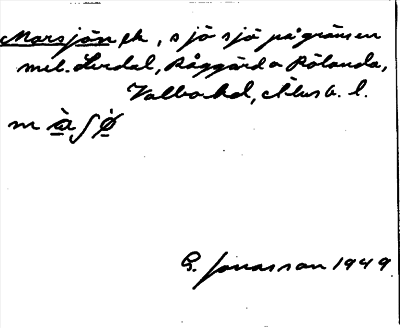 Marsjön ek, sjö sjö på gränsen
mel. Lerdal, Råggärd o Rölanda,
Valbo hd, Älvsb. l.
m
G. Jonasson 1949